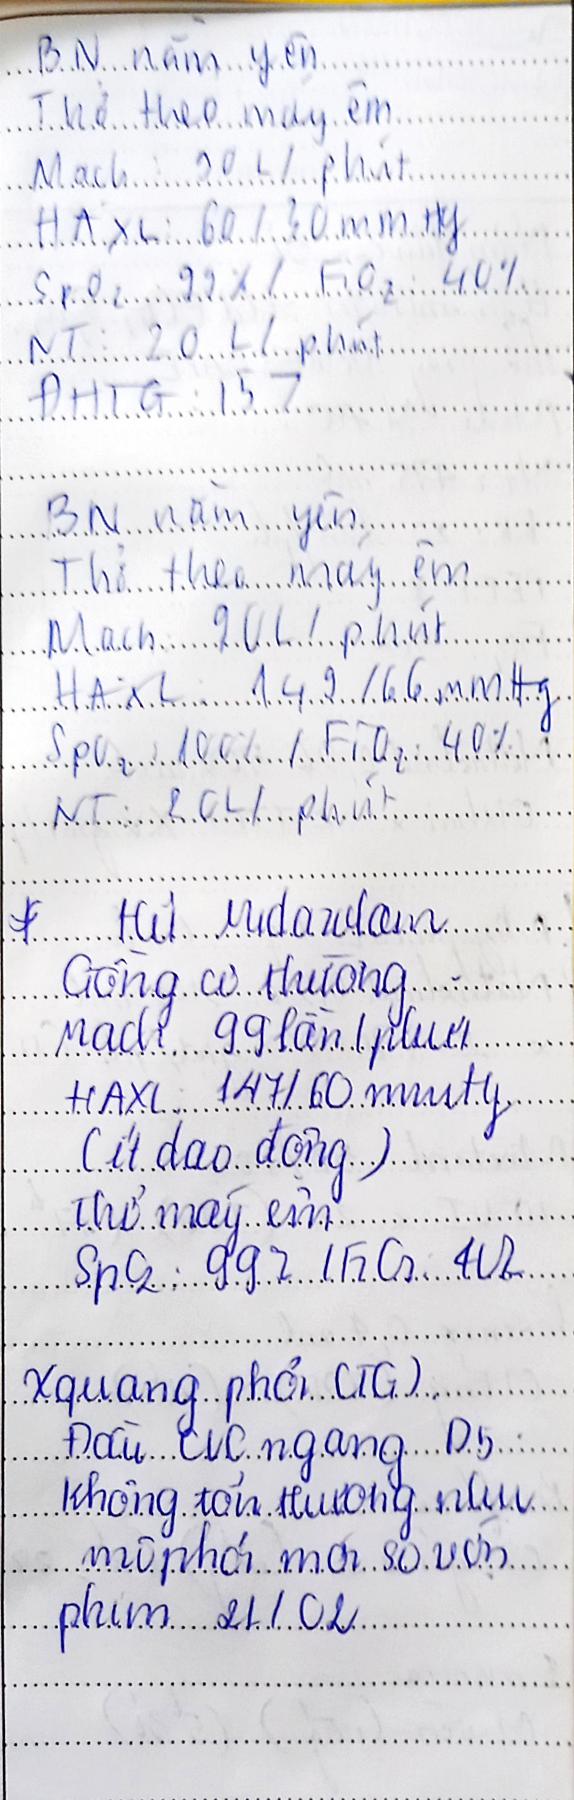 BN nằm yên
Thở theo máy êm
Mạch: 90 L/ phút
HAXL: 60/30 mmHg
SpO2 99% / FiO2: 40%
NT: 20 L/ phút
ĐHTG: 157
BN nằm yên
Thở theo máy êm
Mạch: 90L/ phút
HAXL: 149/66 mmHg
SpO2: 100% / FiO2: 40%
NT: 20L/ phút
* Midazolam
Gồng cơ thường
Mạch 99 lần/phút
HAXL: 147/60 mmHg
(ít dao động)
Thở máy êm
SpO2: 99% / FiO2: 40%
Xquang phổi (TG)
Đầu CVC ngang D5
Không tổn thương nhu
mô phổi mới so với
phim 21/02